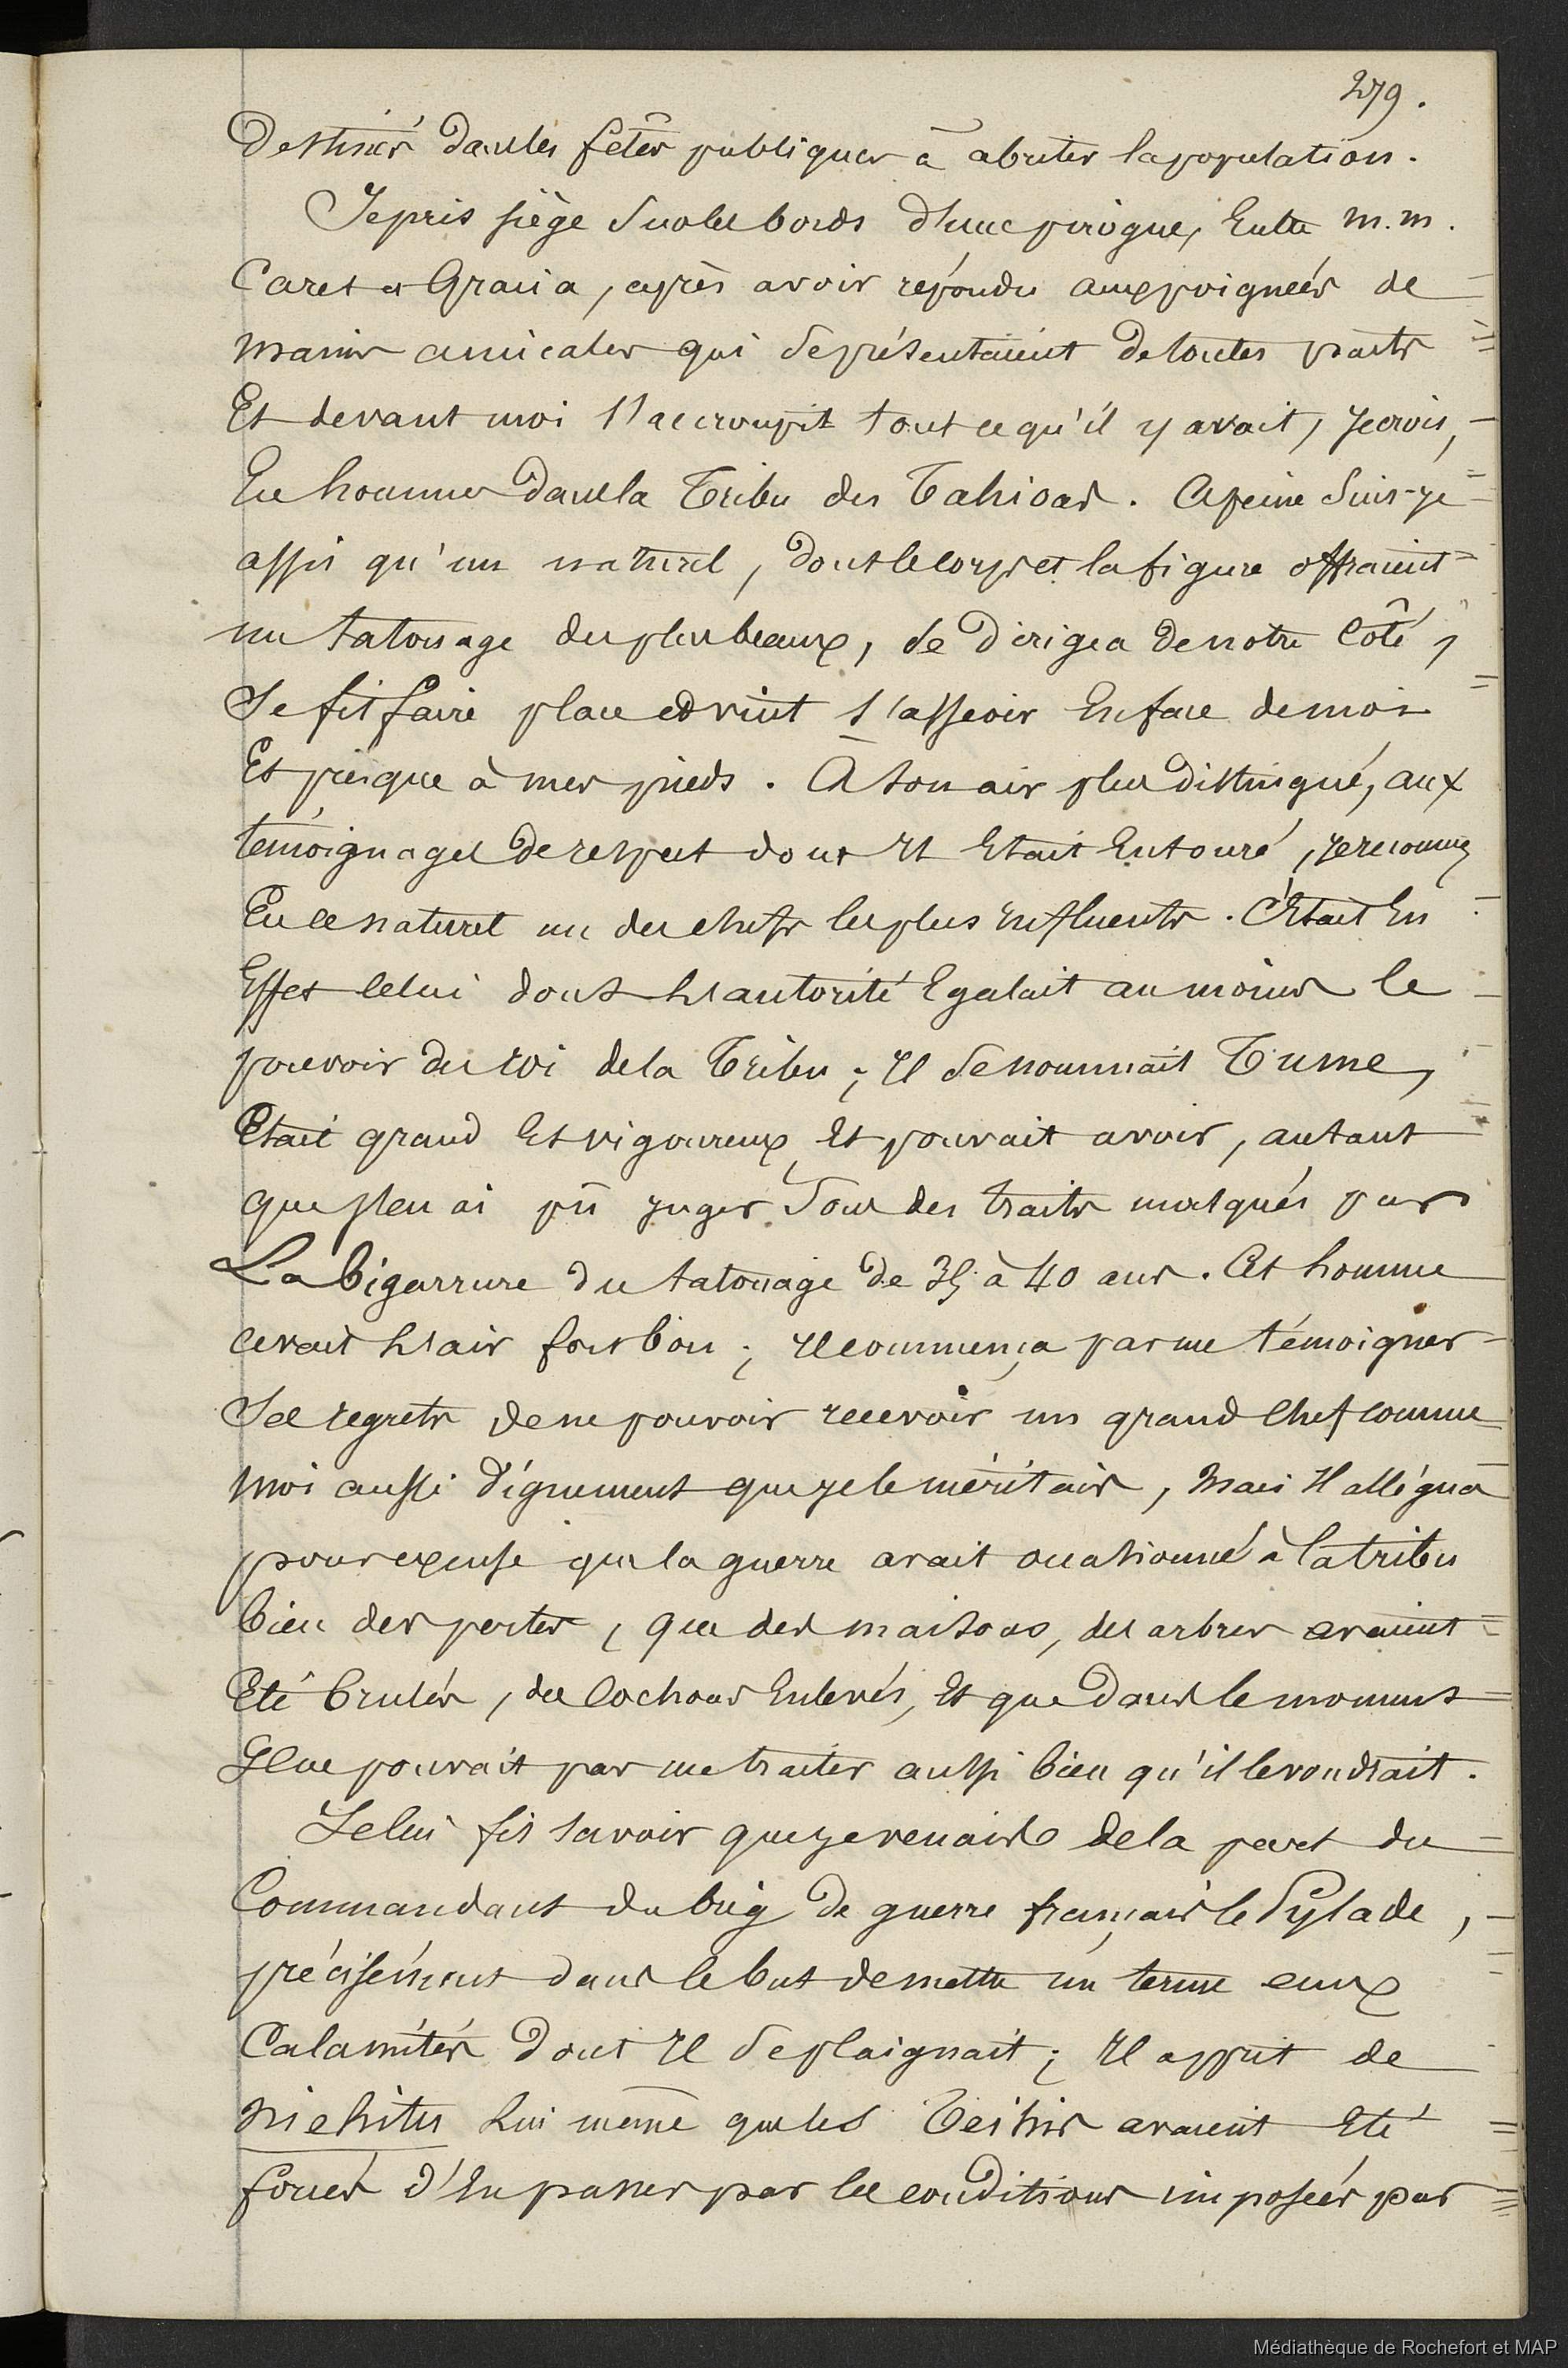 279.
Destinés dans les fêtes publiques à abriter la population.
Je pris siège sur les bords d'une pirogue, Entre m.m.
Caret et Gracia, après avoir répondu aux poignées de
mains amicales qui se présentaient de toutes parts
Et devant moi s'accroupit tout ce qu'il y avait, je crois,
En hommes dans la Tribu des Tahioas. A peine suis-je
assis qu'un naturel, dont le corps et la figure offraient
un tatouage des plus beaux, se dirigea de notre Côté,
Se fit faire place et vint s'asseoir En face de moi
Et presque à mes pieds. A son air plus distingué, aux
témoignages de respect dont Il Etait Entouré, je reconnus
En ce naturel un des chefs les plus Influents. C'Etait En
Effet celui dont l'autorité Egalait au moins le
pouvoir du roi de la Tribu ; Il se nommait Tume,
Etait grand Et vigoureux Et pouvait avoir, autant
que j'en ai pû juger sous des traits masqués par
La bigarrure du tatouage de 35 à 40 ans. Cet homme
avait l'air fort bon ; Il commença par me témoigner
Ses regrets de ne pouvoir recevoir un grand Chef comme
moi aussi dignement que je le méritais, mais Il allégua
pour excuse que la guerre avait occasionné à la tribu
bien des pertes, que des maisons, des arbres avaient
Eté brulés, des Cochons Enlevés, Et que dans le moment
Il ne pouvait pas me traiter aussi bien qu'il le voudrait.
Je lui fis savoir que je venais de la part du
Commandant du brig de guerre français le Pylade,
précisément dans le but de mettre un terme aux
Calamités dont Il se plaignait ; Il apprit de
niehitu Lui même que les Teihis avaient Eté
forcés d'En passer par les conditions imposées par
Médiathèque de Rochefort et MAP